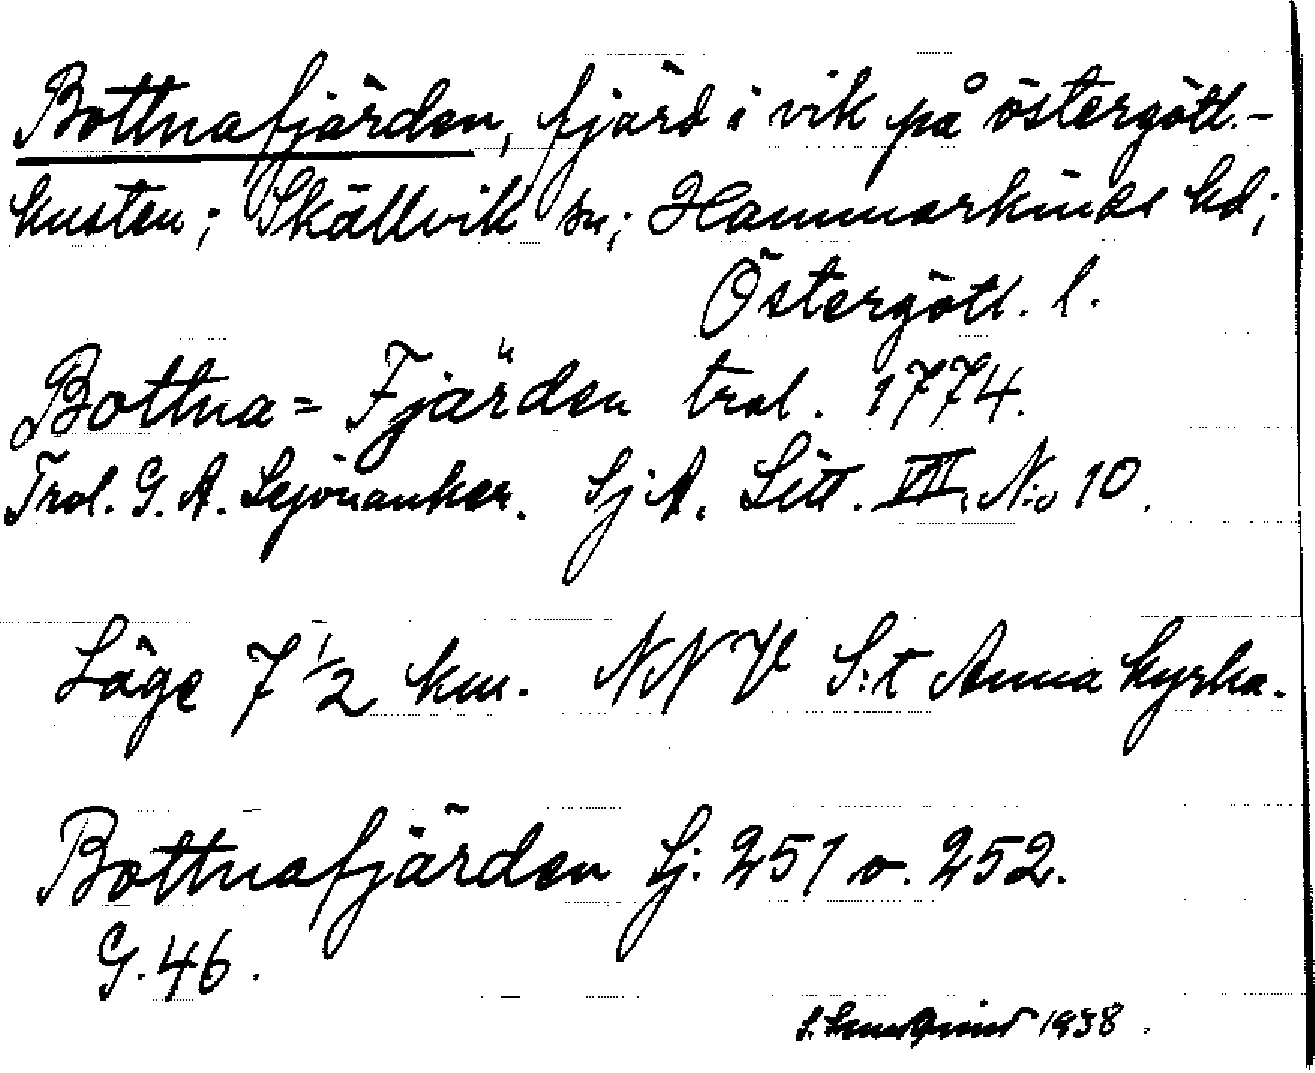 Bottnafjärden, fjärd i vik på östergötl.-
kusten; Skällvik sn; Hammarkinds hd;
Östergötl. l.
Bottna= Fjärden tral. 1774.
Tral. G. A. Lejonanker. Sj A. Litt. VII, N:o 10.
Läge 7 1/2 km. NNV S:t Anna kyrka.
Bottnafjärden Sj. 251 o. 252.
G. 46.
1938.